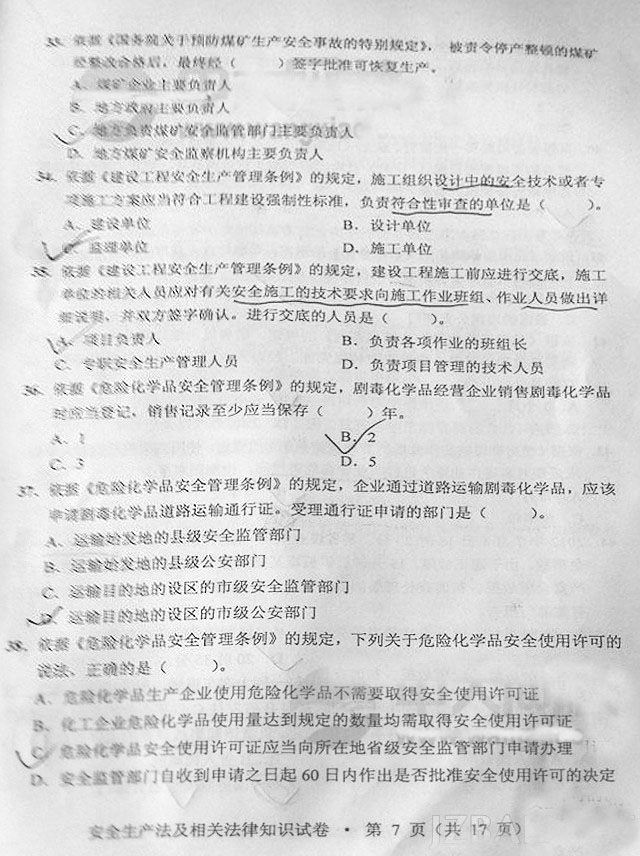 33. 依据《国务院关于预防煤矿生产安全事故的特别规定》，被责令停产整顿的煤矿
经整改合格后，最终经（　　）签字批准可恢复生产。
A. 煤矿企业主要负责人
B. 地方政府主要负责人
C. 地方负责煤矿安全监管部门主要负责人
D. 地方煤矿安全监察机构主要负责人
34. 依据《建设工程安全生产管理条例》的规定，施工组织设计中的安全技术或者专
项施工方案应当符合工程建设强制性标准，负责符合性审查的单位是（　　）。
A. 建设单位　　B. 设计单位
C. 监理单位　　D. 施工单位
35. 依据《建设工程安全生产管理条例》的规定，建设工程施工前应进行交底，施工
单位的相关人员应对有关安全施工的技术要求向施工作业班组、作业人员做出详
细说明，并双方签字确认。进行交底的人员是（　　）。
A. 项目负责人　　B. 负责各项作业的班组长
C. 专职安全生产管理人员　　D. 负责项目管理的技术人员
36. 依据《危险化学品安全管理条例》的规定，剧毒化学品经营企业销售剧毒化学品
时应当登记，销售记录至少应当保存（　　）年。
A. 1　　B. 2
C. 3　　D. 5
37. 依据《危险化学品安全管理条例》的规定，企业通过道路运输剧毒化学品，应该
申请剧毒化学品道路运输通行证。受理通行证申请的部门是（　　）。
A. 运输始发地的县级安全监管部门
B. 运输始发地的县级公安部门
C. 运输目的地的设区的市级安全监管部门
D. 运输目的地的设区的市级公安部门
38. 依据《危险化学品安全管理条例》的规定，下列关于危险化学品安全使用许可的
说法，正确的是（　　）。
A. 危险化学品生产企业使用危险化学品不需要取得安全使用许可证
B. 化工企业危险化学品使用量达到规定的数量均需取得安全使用许可证
C. 危险化学品安全使用许可证应当向所在地省级安全监管部门申请办理
D. 安全监管部门自收到申请之日起 60 日内作出是否批准安全使用许可的决定
安全生产法及相关法律知识试卷 · 第 7 页（共 17 页）